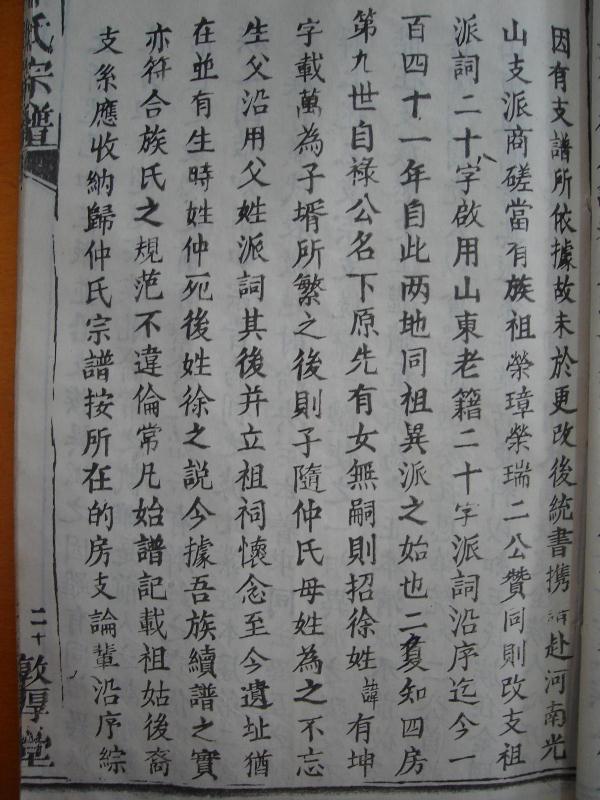 因有支譜所依據故未於更改後統書携請赴河南光
山支派商磋當有族祖榮璋榮瑞二公贊同則改支祖
派詞二十字啟用山東老籍二十字派詞沿序迄今一
百四十一年自此两地同祖異派之始也二复知四房
第九世自祿公名下原先有女無嗣則招徐姓諱有坤
字載萬為子壻所繁之後則子隨仲氏母姓為之不忘
生父沿用父姓派詞其後并立祖祠懷念至今遺址猶
在並有生時姓仲死後姓徐之説今據吾族續譜之實
亦符合族氏之規范不違倫常凡始譜記載祖姑後裔
支系應收納歸仲氏宗譜按所在的房支論輩沿序綜
氏宗譜
二十
敦厚堂